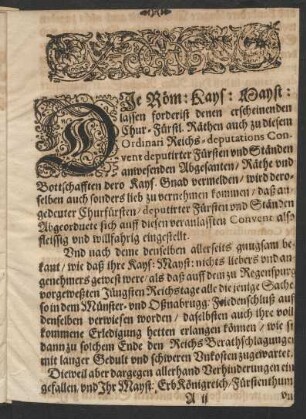 DIe Röm: Kays: Mayst:
lassen forderist denen erscheinenden
Chur-Fürstl. Räthen auch zu diesem
Ordinari Reichs-deputations Con-
vent deputirter Fürsten und Ständen
anwesenden Abgesanten/ Räthe und
Bottschafften dero Kays. Gnad vermelden/ wird dero-
selben auch sonders lieb zu vernehmen kommen/ daß an-
gedeuter Churfürsten/ deputirter Fürsten und Ständen
Abgeordnete sich auff diesen veranlassten Convent also
fleissig und willfährig eingestellt.
Und nach deme denselben allerseits gnugsam be-
kant/ wie daß ihre Kays: Mayst: nichts liebers und an-
genehmers gewest were/ als daß auff dem zu Regenspurg
vorgeweßten Jüngsten Reichstage alle die jenige Sache
so in dem Münster- und Oßnabrugg: Friedenschluß auf
denselben verwiesen worden/ daselbsten auch ihre voll-
kommene Erledigung hetten erlangen können/ wie si
dann zu solchem Ende den Reichs Berathschlagungen
mit langer Gedult und schweren Unkosten zugewartet.
Dieweil aber dargegen allerhand Verhinderungen ein
gefallen, und Ihr Mayst: Erb Königreich/ Fürstenthum
A ij